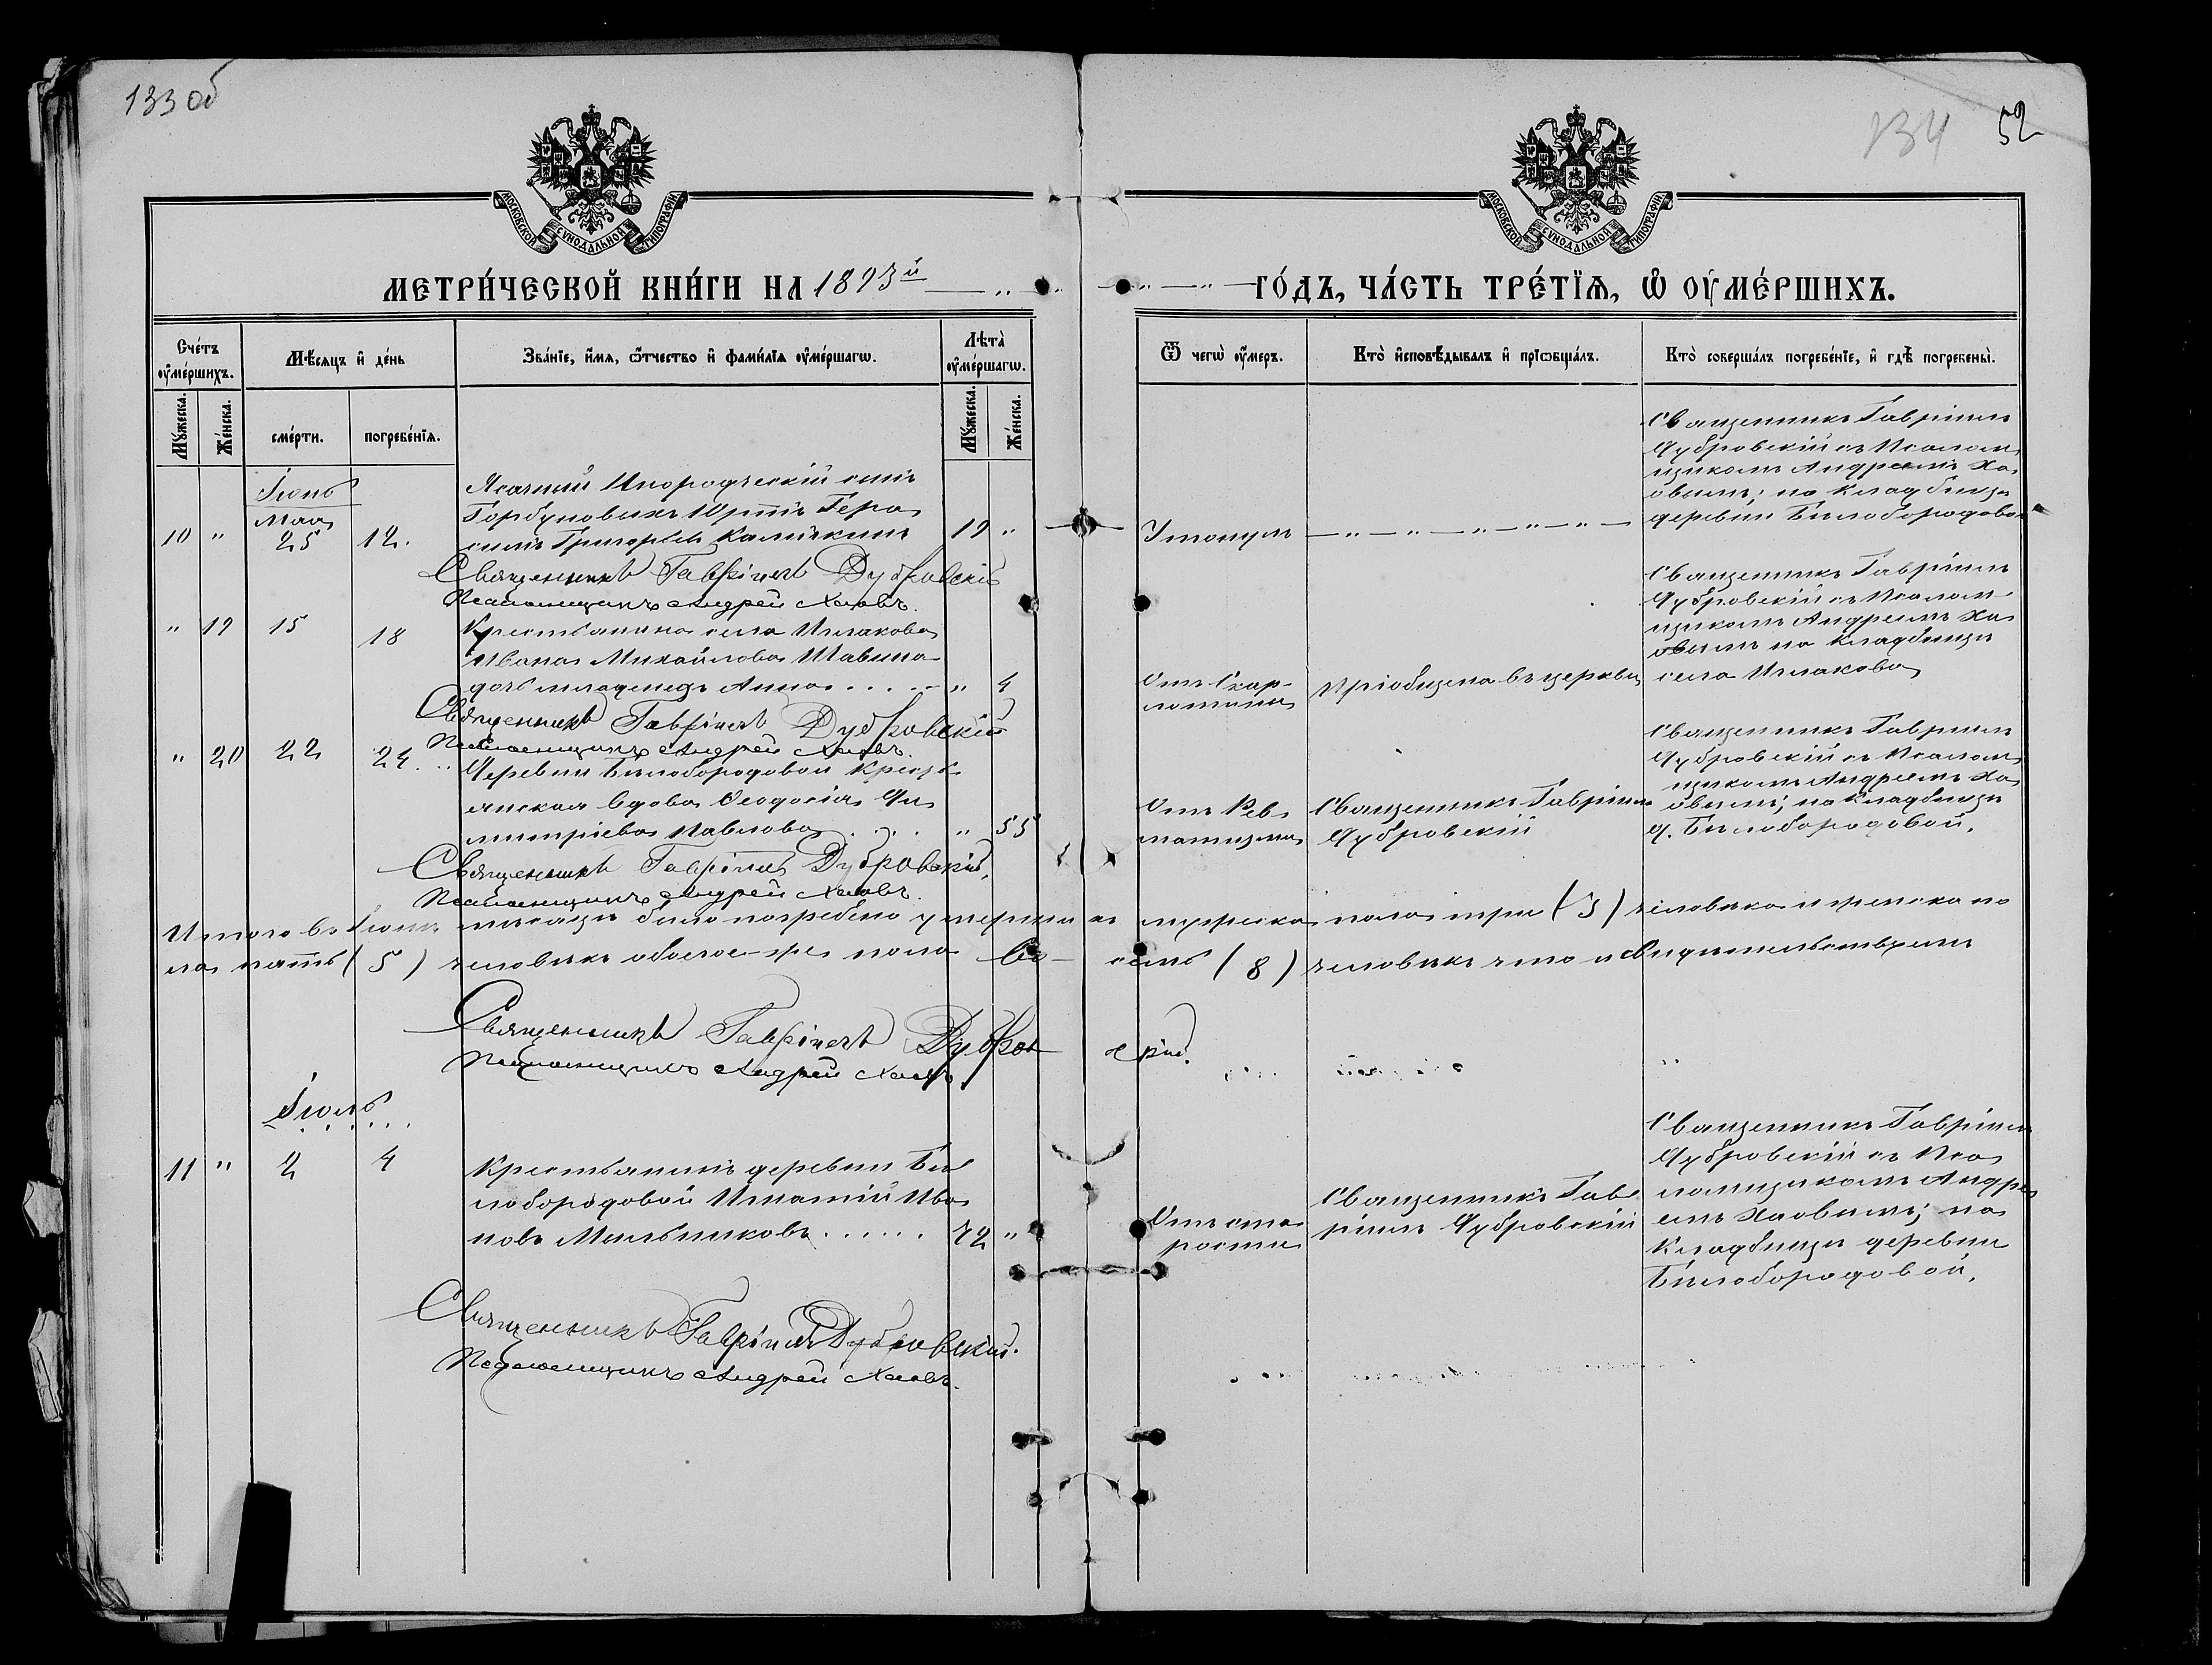 133 об
134 52
МОСКОВСКОЙ СѴНОДАЛЬНОЙ ТИПОГРАФІИ
МОСКОВСКОЙ СѴНОДАЛЬНОЙ ТИПОГРАФІИ
МЕТРИ́ЧЕСКОЙ КНИ́ГИ НА 1893й
ГО́ДЪ, ЧА́СТЬ ТРЕ́ТЇѦ, Ѡ҆ ОУ҆МЕ́РШИХЪ.
Сче́тъ оу҆ме́ршихъ.
Мѣ́сѧцъ и҆ де́нь
Зва́нїе, и҆́мѧ, ѻ҆́тчество и҆ фами́лїѧ оу҆ме́ршагѡ.
Лѣта̀ оу҆ме́ршагѡ.
Ѿ чегѡ̀ оу҆́меръ.
Кто̀ и҆сповѣ́дывалъ и҆ прїѡбща́лъ.
Кто̀ соверша́лъ погребе́нїе, и҆ гдѣ̀ погребены̀.
Мꙋ́жеска.
Же́нска.
сме́рти.
погребе́нїѧ.
Мꙋ́жеска.
Же́нска.
Іюнь
Мая
10 " 25 12.
Ясачный Инородческій сынъ
Горбуновыхъ Юртъ Гера
симъ Григорьев Калинкинъ 19 "
Утонулъ — " — " — " — " —
Священникъ Гавріилъ
Дубровскій съ Псалом
щикомъ Андреемъ Ха
овымъ; на кладбищѣ
деревни Бѣлобородовой
Священникъ Гавріилъ Дубровскій
Псаломщикъ Андрей Хаовъ.
" 19 15 18
Крестьянина села Ишакова
Ивана Михайлова Шавина
дочь младенецъ Анна . . . . " 4
Отъ Скар-
латины
Пріобщена въ церкви
Священникъ Гавріилъ
Дубровскій съ Псалом
щикомъ Андреемъ Ха
овымъ на кладбищѣ
села Ишакова
Священникъ Гавріилъ Дубровскій
Псаломщикъ Андрей Хаовъ.
" 20 22 24
Деревни Бѣлобородовой Кресть
янская вдова Ѳеодосія Ди
митріева Павлова . . . . " 55
Отъ Рев
матизма
Священникъ Гавріилъ
Дубровскій
Священникъ Гавріилъ
Дубровскій съ Псалом
щикомъ Андреемъ Ха
овымъ; на кладбищѣ
д. Бѣлобородовой.
Священникъ Гавріилъ Дубровскій,
Псаломщикъ Андрей Хаовъ.
Итого въ Іюнѣ мѣсяцѣ было погребено умершихъ мужеска пола три (3) человѣка и женска по
ла пять (5) человѣкъ обоего-же пола во осемь (8) человѣкъ что и свидѣтельствуемъ
Священникъ Гавріилъ Дубровскій.
Псаломщикъ Андрей Хаовъ.
Іюль
11 " 2 4
Крестьянинъ деревни Бѣ
лобородовой Игнатій Ива
новъ Мыльниковъ . . . . . . 72 "
Отъ ста
рости
Священникъ Гав
ріилъ Дубровскій
Священникъ Гавріилъ
Дубровскій съ Пса
ломщикомъ Андре
емъ Хаовымъ; на
Кладбищѣ деревни
Бѣлобородовой.
Священникъ Гавріилъ Дубровскій.
Псаломщикъ Андрей Хаовъ.